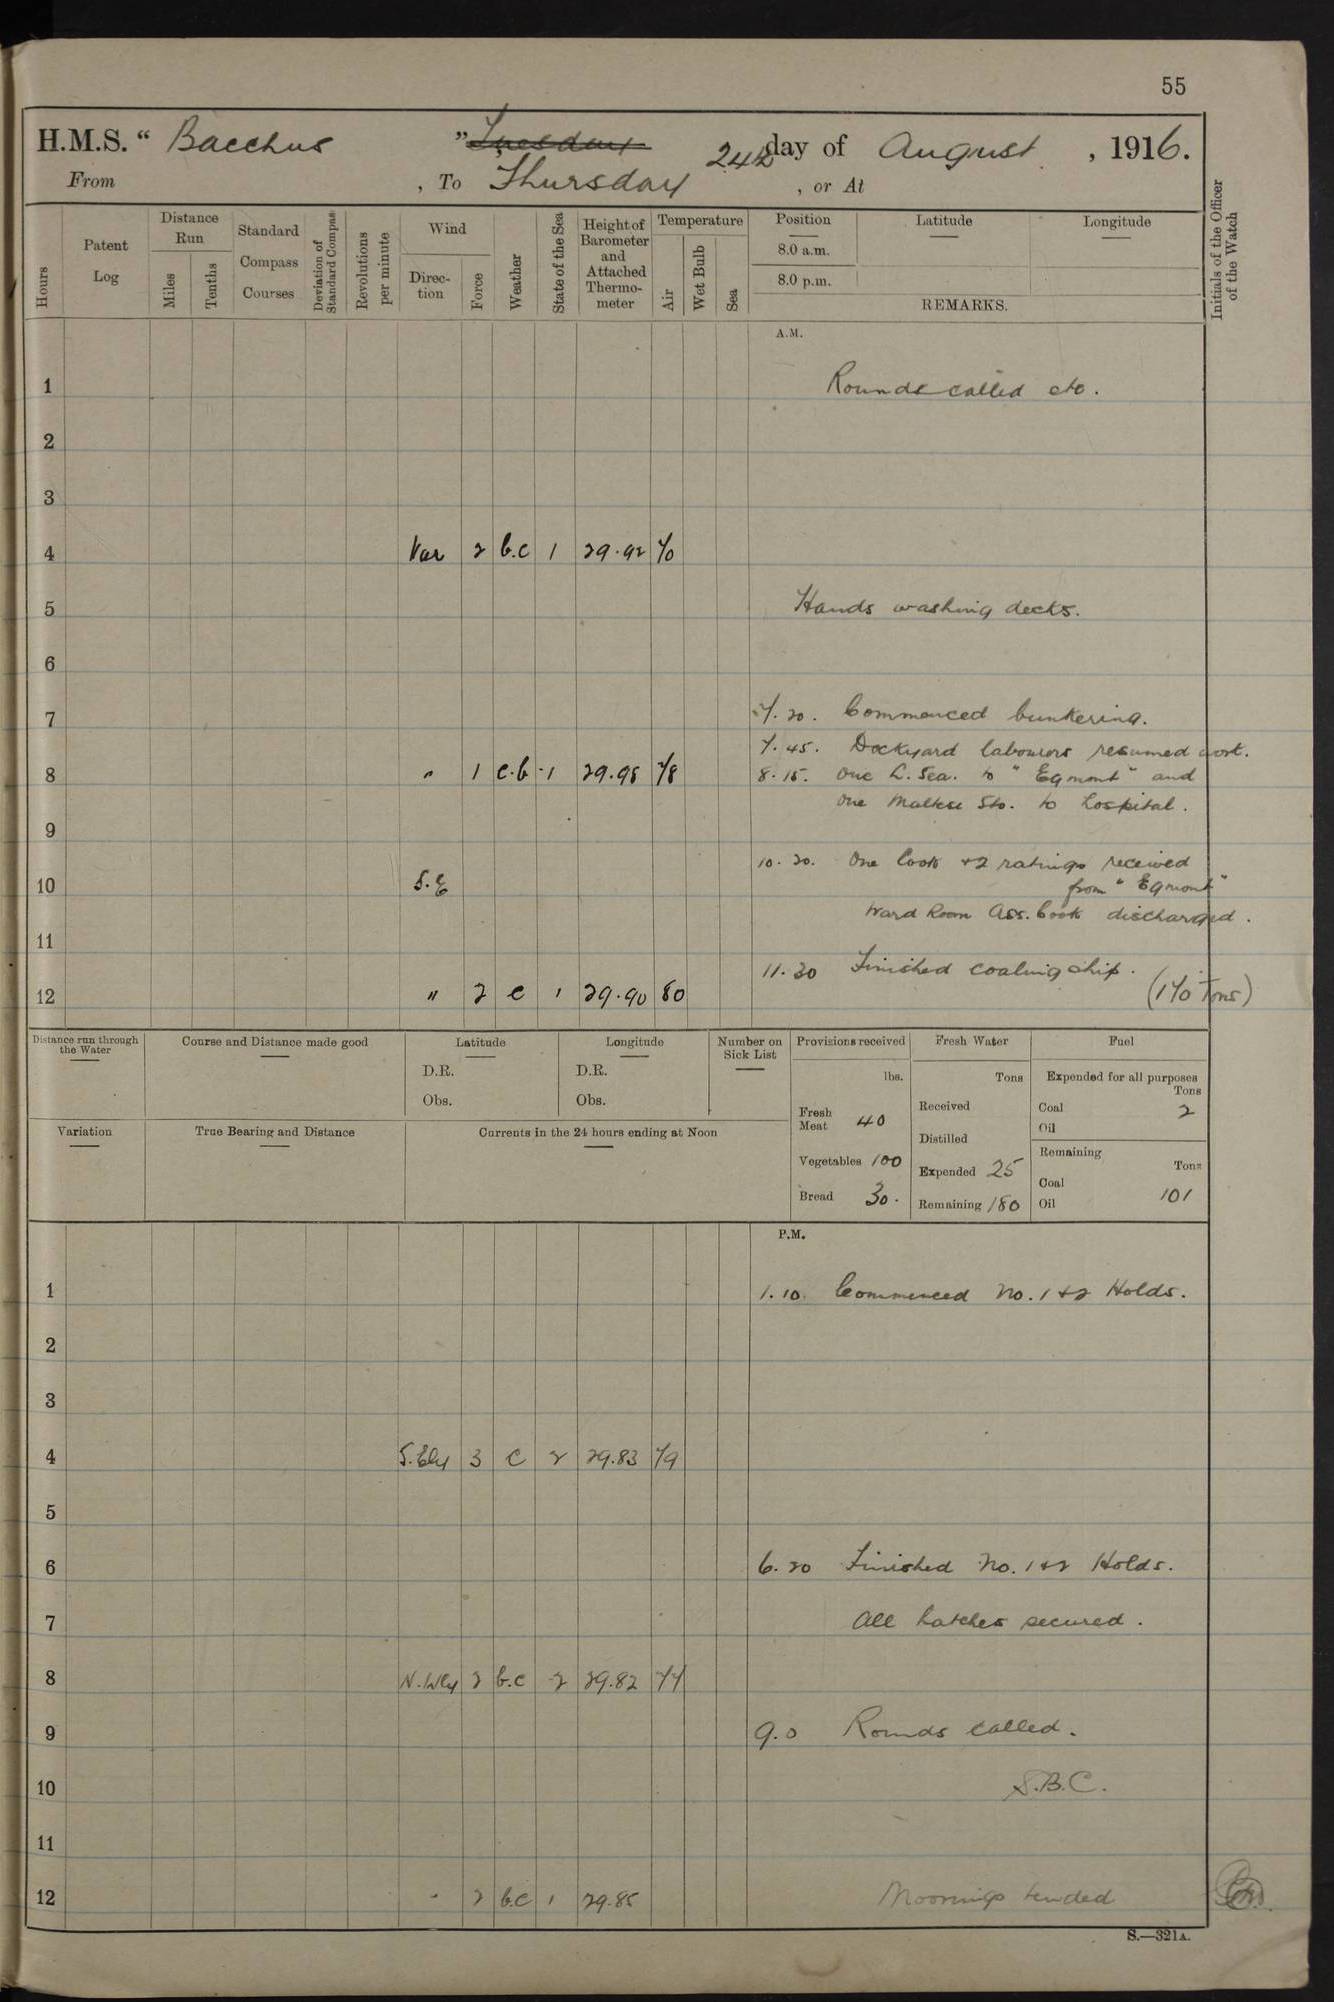 55
H.M.S. “ Bacchus ” Tuesday 24th day of August , 1916.
From , To Thursday , or At
Hours
Patent Log
Distance Run
Miles
Tenths
Standard Compass Courses
Deviation of Standard Compass
Revolutions per minute
Wind
Direc- tion
Force
Weather
State of the Sea
Height of Barometer and Attached Thermo- meter
Temperature
Air
Wet Bulb
Sea
Position
8.0 a.m.
8.0 p.m.
Latitude
Longitude
REMARKS.
Initials of the Officer of the Watch
A.M.
1 Rounds called etc.
2
3
4 Var 2 b.c 1 29.92 70
5 Hands washing decks.
6
7 7.20. Commenced bunkering.
7.45. Dockyard labourers resumed work.
8 " 1 c.b 1 29.98 78 8.15. One L. Sea. to "Egmont" and
one Maltese Sto. to hospital.
9
10.20. One Cook +2 ratings received
10 S.E from "Egmont"
Ward Room Ass. Cook discharged.
11
11.30 Finished coaling ship.
12 " 2 c 1 29.90 80 (170 Tons)
Distance run through the Water
Course and Distance made good
Latitude
D.R.
Obs.
Longitude
D.R.
Obs.
Number on Sick List
Provisions received
lbs.
Fresh Meat 40
Vegetables 100
Bread 30.
Fresh Water
Tons
Received
Distilled
Expended 25
Remaining 180
Fuel
Expended for all purposes
Tons
Coal 2
Oil
Remaining
Tons
Coal 101
Oil
Variation
True Bearing and Distance
Currents in the 24 hours ending at Noon
P.M.
1 1.10. Commenced No. 1 +2 Holds.
2
3
4 S.Ely 3 c 2 29.83 79
5
6 6.20 Finished No. 1 +2 Holds.
7 All hatches secured.
8 N.Wly 2 b.c 2 29.82 77
9 9.0 Rounds called.
10 S.B.C.
11
12 " 2 b.c 1 29.85 Moorings tended
S.—321A.